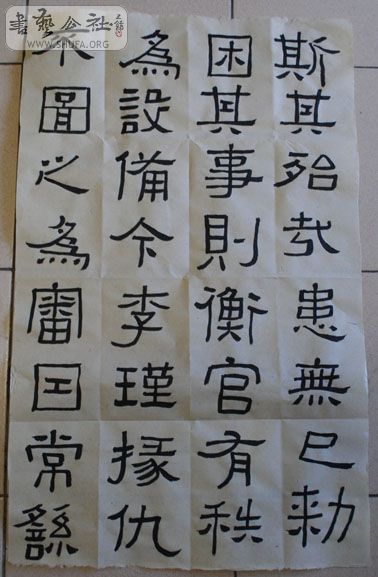 書藝公社
WWW.SHUFA.ORG
斯其殆哉患無已勑
困其事則衡官有秩
為設備今李瑾掾仇
不圖之為審囙常繇